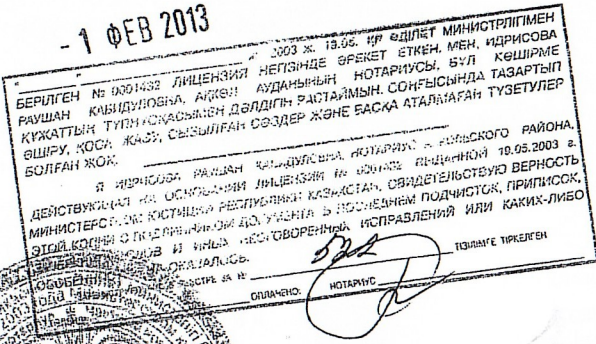 - 1 ФЕВ 2013
2003 ж. 19.05. ҚР ӘДІЛЕТ МИНИСТРЛІГІМЕН
БЕРІЛГЕН № 0001432 ЛИЦЕНЗИЯ НЕГІЗІНДЕ ӘРЕКЕТ ЕТКЕН, МЕН, ИДРИСОВА
РАУШАН КАБИДУЛОВНА, АҚКӨЛ АУДАНЫНЫҢ НОТАРИУСЫ, БҰЛ КӨШІРМЕ
ҚҰЖАТТЫҢ ТҮПНҰСҚАСЫМЕН ДӘЛДІГІН РАСТАЙМЫН. СОҢҒЫСЫНДА ТАЗАРТЫП
ӨШІРУ, ҚОСА ЖАЗУ, СЫЗЫЛҒАН СӨЗДЕР ЖӘНЕ БАСҚА АТАЛМАҒАН ТҮЗЕТУЛЕР
БОЛҒАН ЖОҚ.
Я ИДРИСОВА РАУШАН КАБИДУЛОВНА, НОТАРИУС АККОЛЬСКОГО РАЙОНА,
ДЕЙСТВУЮЩАЯ НА ОСНОВАНИИ ЛИЦЕНЗИИ № 0001432 ВЫДАННОЙ 19.05.2003 г.
МИНИСТЕРСТВОМ ЮСТИЦИИ РЕСПУБЛИКИ КАЗАХСТАН, СВИДЕТЕЛЬСТВУЮ ВЕРНОСТЬ
ЭТОЙ КОПИИ С ПОДЛИННИКОМ ДОКУМЕНТА В ПОСЛЕДНЕМ ПОДЧИСТОК, ПРИПИСОК,
И ИНЫХ НЕОГОВОРЕННЫХ ИСПРАВЛЕНИЙ ИЛИ КАКИХ-ЛИБО
ОСОБЕННОСТЕЙ НЕ ОКАЗАЛОСЬ.
ЗА № ТІЗІЛІМГЕ ТІРКЕЛГЕН
ОПЛАЧЕНО: НОТАРИУС